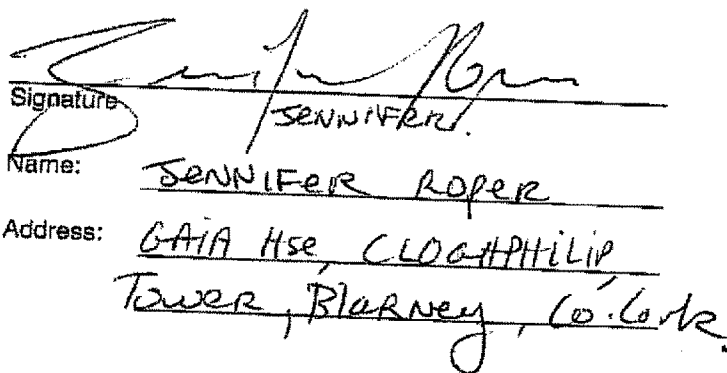 Signature
JENNIFER.
Name: JENNIFER ROPER
Address: GAIA Hse, CLOGHPHILIP,
TOWER, BLARNEY, Co. Cork.